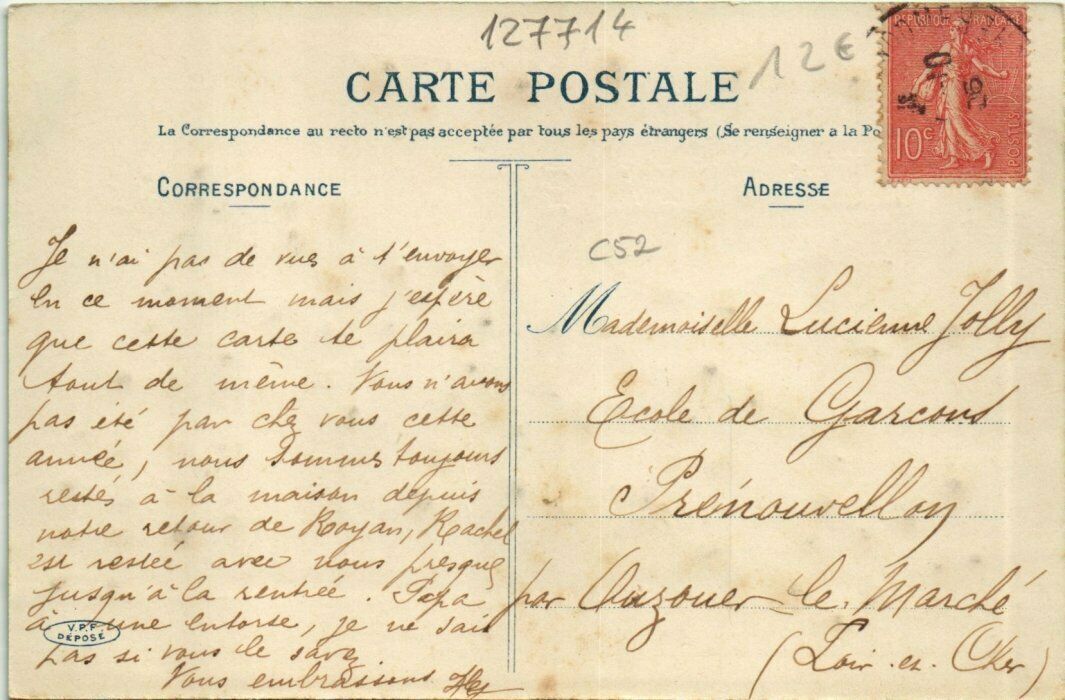 127714
12€
CARTE POSTALE
La Correspondance au recto n'est pas acceptée par tous les pays étrangers (Se renseigner a la Po
REPUBLIQUE FRANÇAISE
10c
POSTES
CORRESPONDANCE
Je n'ai pas de vues à t'envoyer
en ce moment mais j'espère
que cette carte te plaira
tout de même. Nous n'avons
pas été par chez vous cette
année, nous sommes toujours
restés à la maison depuis
notre retour de Royan, Rachel
est restée avec nous presque
jusqu'à la rentrée. Papa
à une entorse, je ne sais
pas si vous le savez
Vous embrassons
V.P.F.
DÉPOSÉ
ADRESSE
C52
Mademoiselle Lucienne Jolly
Ecole de Garcons
Prénouvellon
par Ouzouer le Marché
(Loir-et-Cher)